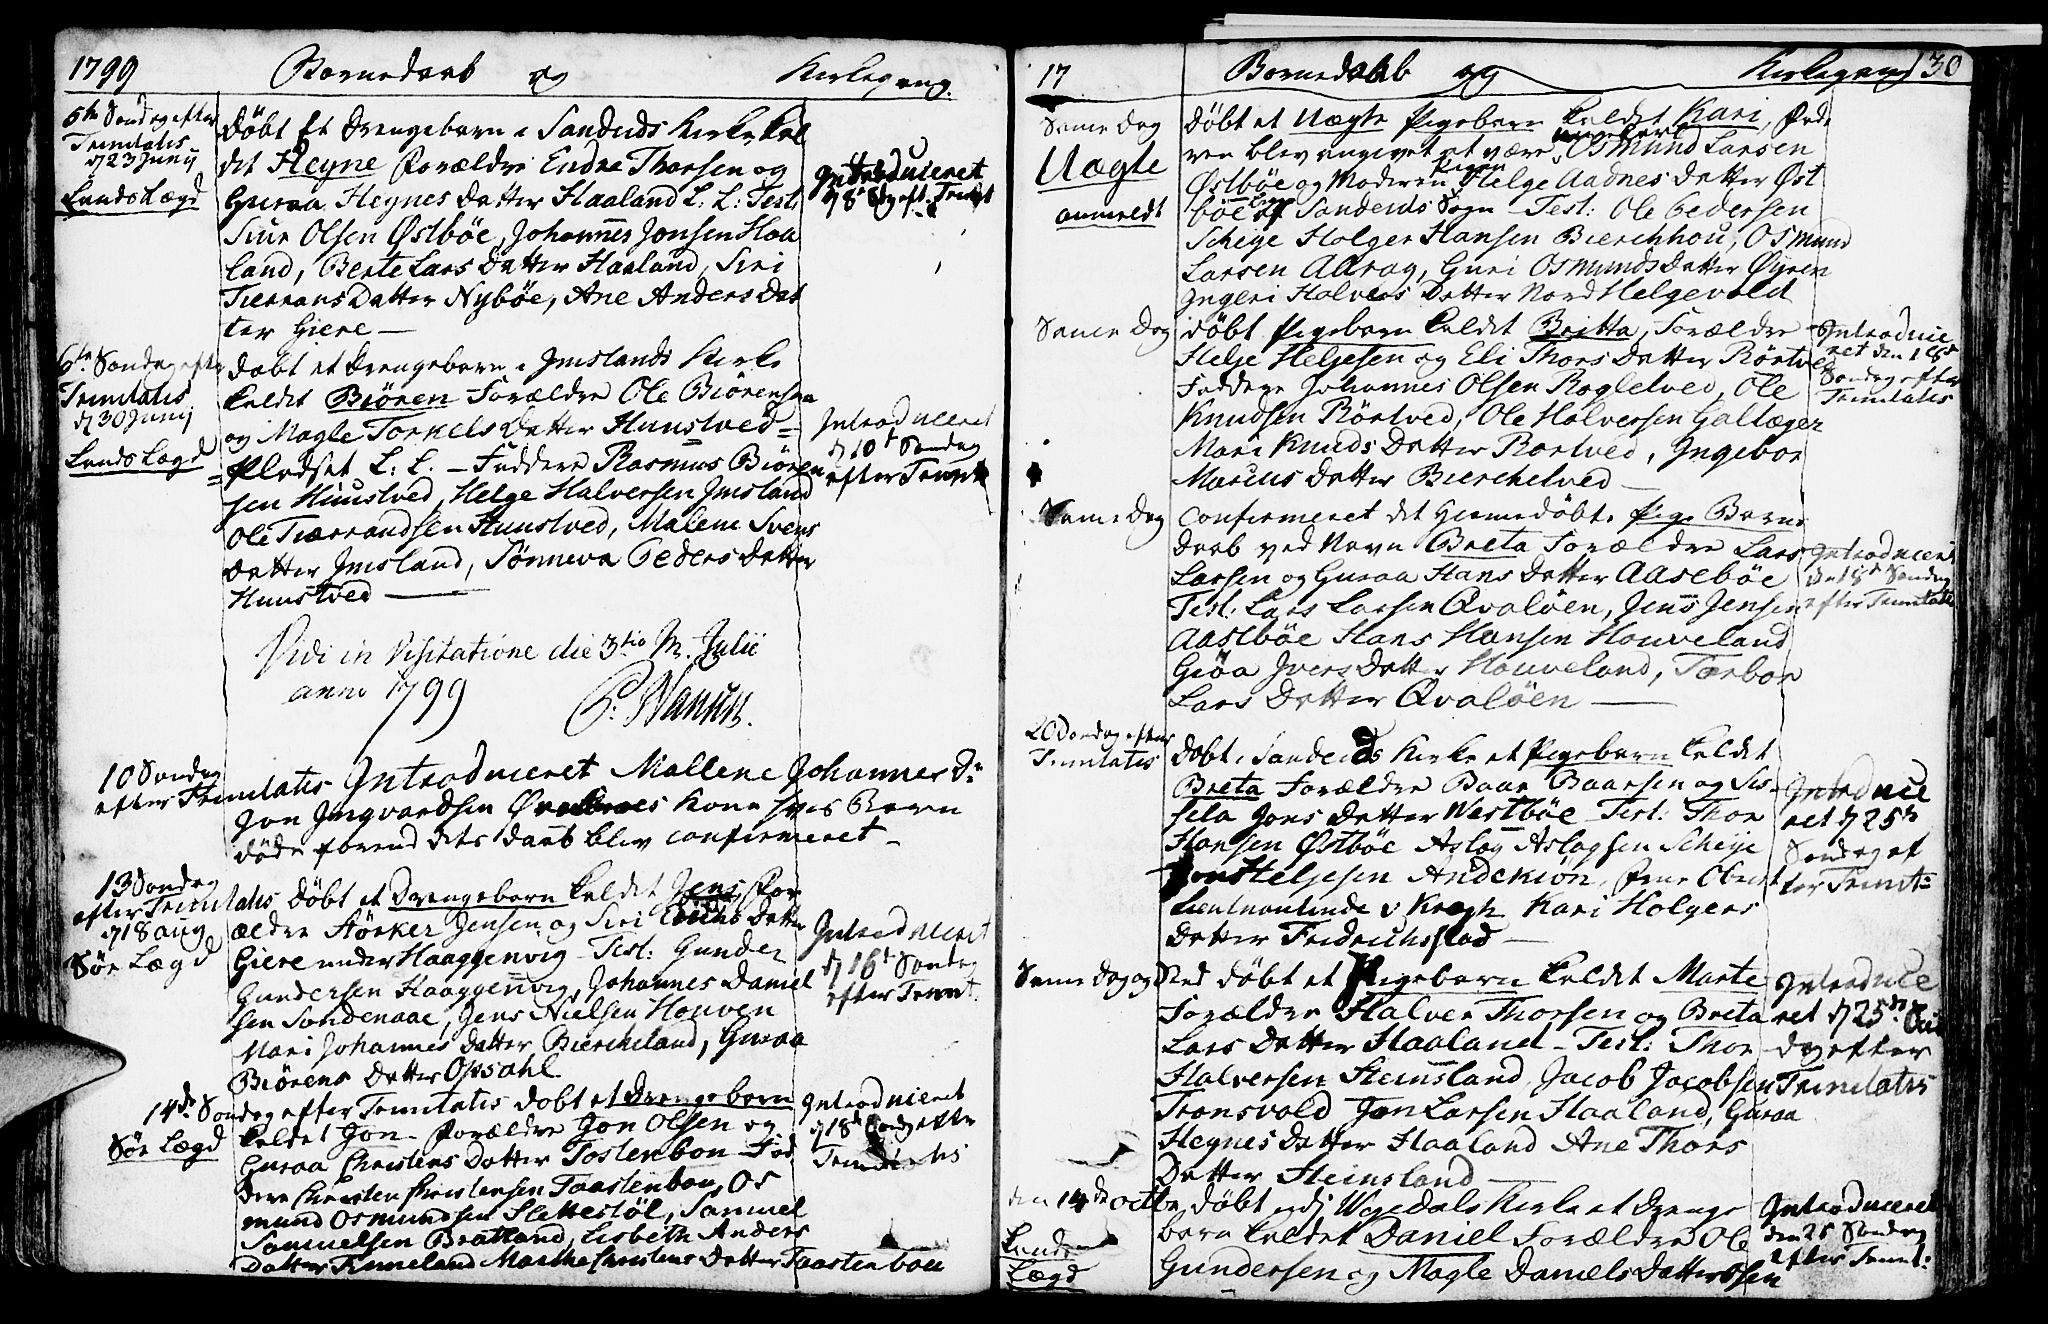 1799 Bornedaab og Kirkegang.
5te Søndag efter
Trinitatis
d 23 Junij
Lands Lægd
døbt et drengebarn i Sandeids Kirke kal
det Heyne Forældre Endre Thorsen og
Guroa Heynes datter Haaland L: L: Test:
Siur Olsen Østbøe, Johannes Jonsen Haa
land, Berte Lars Datter Haaland, Siri
Tierrans Datter Nybøe, Ane Anders Dat
ter Giere —
Introduceret
d 8de S: eft. Trinit
6te Søndag efter
Trinitatis
d 30 Junij
Lands Lægd
døbt et drengebarn i Imslands Kirke
kaldet Biøren Forældre Ole Biørensen
og Magle Torkels Datter Hunstved=
=Pladset L: L. — Faddere Rasmus Biøren
sen Hunstved, Helge Halversen Imsland
Ole Tiærrandsen Hunstved, Malene Svens
Datter Imsland, Sønneva Peders Datter
Hunstved —
Introduceret
d 10de Søndag
efter Trinit
Vidi in Visitatione die 3tio M. Julii
anno 1799
10 Søndag
efter Trinitatis Introduceret Mallene Johannes D:
Jon Ingvardsen kone hvis Barn
døde forend dets daab blev confirmeret —
13 Søndag
efter Trinitatis døbt et Drengebarn kaldet Jens, For
d 18 aug
Sør Lægd
ældre Størker Jensen og Siri Erichs Datter
Giere under Haaggenvig — Test: Gunder
Gundersen Haaggenvig, Johannes Daniel
sen Søndenaae, Jens Nielsen Houven
Mari Johannes Datter Biercheland, Guroa
Biørens Datter Opsahl
Introduceret
d 16de Søndag
efter Trinit.
14de Søndag efter Trinitatis døbt et Drengebarn
Sør Lægd
kaldet Jon Forældre Jon Olsen og
Guroa Christens Datter Tostenbou Fad
dere Christen Christensen Taastenbou, Os
mund Osmundsen Slettestøl, Samuel
Samuelsen Bratland, Lisbeth Anders
Datter Finneland Marthe Christens Datter Taastenbou
Introduceret
d 18de Søndag efter
Trinitatis
17 Bornedaab og Kirkegang 30
Same Dag
Uægte
anmeldt
døbt et Uægte Pigebarn kaldet Kari, Fade
ren blev angivet at være ungekarl Osmund Larsen
Østbøe og Moderen Pigen Helge Aadnes datter Øst
bøe af Sandeids Sogn — Test: Ole Pedersen
Scheye Holger Hansen Bierchhou, Osmund
Larsen Alrag, Guri Osmunds Datter Øyren
Ingeri Halvors Datter Nord Helgevold
Same Dag
døbt Pigebarn kaldet Britta, Forældre
Helje Heljesen og Eli Thors Datter Rørtved
Faddere Johannes Olsen Rogletved, Ole
Knudsen Rørtved, Ole Halversen Galtæger
Mari Knuds Datter Rortved, Ingebor
Marcus Datter Bierchetved —
Introduce
ret den 18de
Søndag efter
Trinitatis
Same Dag
confirmeret det hiemedøbte Pige Barns
Daab ved Navn Breta Forældre Lars
Larsen og Guroa Hans Datter Aasebøe
Test: Lars Larsen Qvaløen, Jens Jensen
Aasebøe Hans Hansen Houveland
Giøa Ivers Datter Houveland, Torbor
Lars Datter Qvaløen —
Introduceret
den 18de Søndag
efter Trinitatis
20 Søndag efter
Trinitatis
døbt i Sandeids Kirke et Pigebarn kaldet
Breta Forældre Baar Baarsen og Sis-
sela Jons Datter Westbøe — Test: Thor
Hansen Østbøe Aslag Aslagsen Scheye
Jon Heljesen Andekiøn, Frue Oberst
Lieutnantinde v Krogh Kari Holgers
Datter Fridrichsstad —
Introduce
ret d 25de
Søndag ef
ter Trinit=
Same Dag og Sted døbt et Pigebarn kaldet Marte
Forældre Halver Thorsen og Breta
Lars Datter Haaland — Test: Thor
Halversen Steinsland, Jacob Jacobsen
Transvold Jon Larsen Haaland, Guroa
Heynes Datter Haaland Ane Thors
Datter Steinsland —
Introduce
ret d 25de Søn
dag efter
Trinitatis
den 14de octbr døbt udj Wigedals Kirke et drenge
Lands
Lægd
barn kaldet Daniel Forældre Ole
Gundersen og Magle Daniels Datter
Introduceret
den 25 Søndag
efter Trinit: